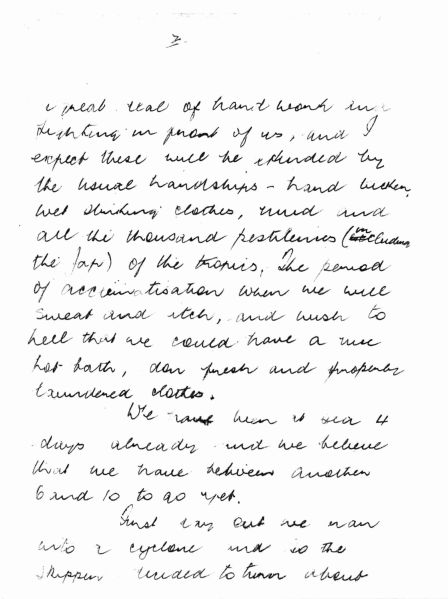 2.
a great deal of hard work and
fighting in front of us, and I
expect these will be attended by
the usual hardships - hard tucker,
wet stinking clothes, mud and
all the thousand pestilences (including
the Jap) of the tropics. The period
of acclimatisation when we will
sweat and itch, and wish to
hell that we could have a nice
hot bath, don fresh and properly
laundered clothes.
We have been at sea 4
days already and we believe
that we have between another
6 and 10 to go yet.
First day out we ran
into a cyclone and so the
skipper decided to turn about